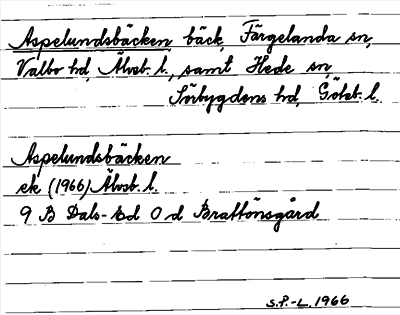 Aspelundsbäcken, bäck, Färgelanda sn,
Valbo hd, Älvsb. l., samt Hede sn,
Sörbygdens hd, Göteb. l.
Aspelundsbäcken
ek (1966) Älvsb. l.
9 B Dals-Ed 0 d Brattönsgård
S.P.-L. 1966